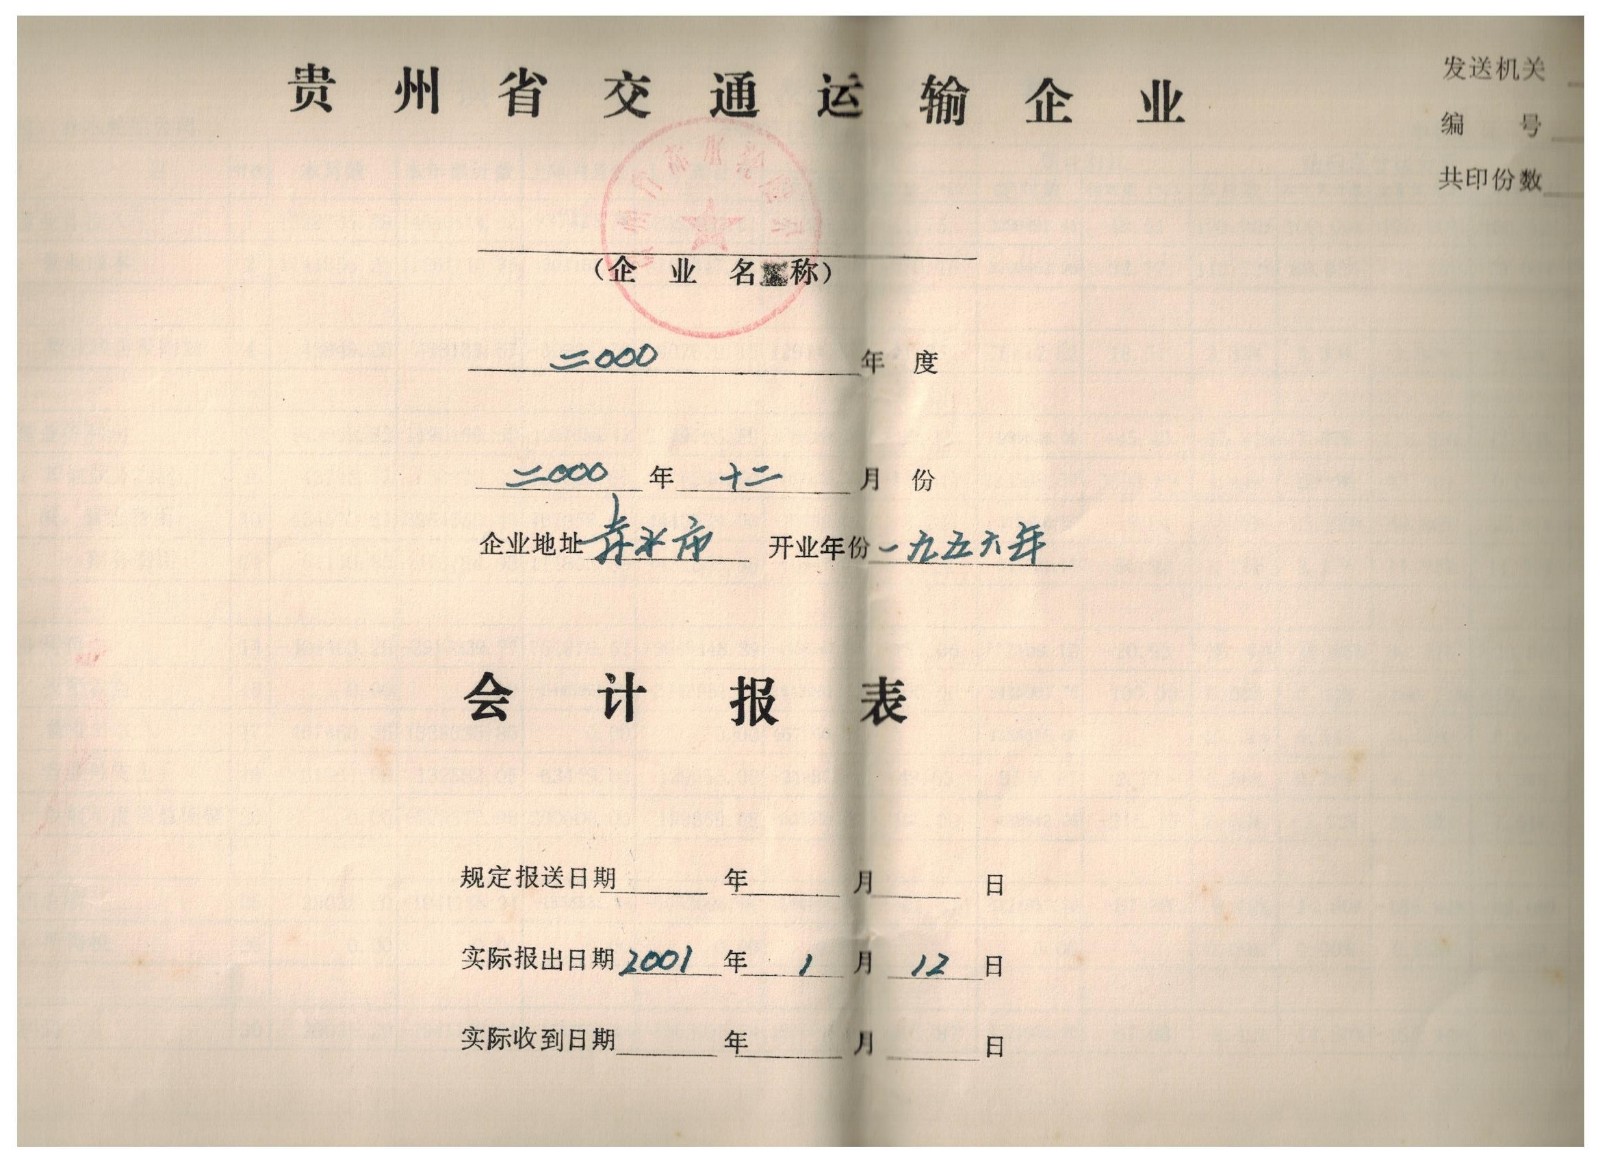 贵州省交通运输企业
发送机关
编 号
共印份数
(企业名称)
二000年度
二000年十二月份
企业地址 赤水市 开业年份 一九五六年
会计报表
规定报送日期 年 月 日
实际报出日期 2001 年 1 月 12 日
实际收到日期 年 月 日